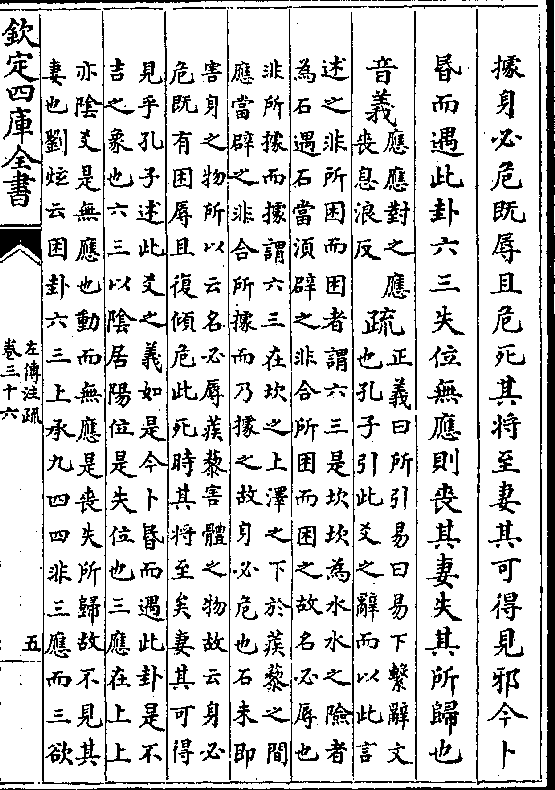 據身必危既辱且危死其將至妻其可得見邪今卜
昏而遇此卦六三失位無應則喪其妻失其所歸也
音義
應應對之應
喪息浪反
疏
正義曰所引易曰易下繫辭文
也孔子引此爻之辭而以此言
述之非所困而困者謂六三是坎坎為水水之險者
為石遇石當須辟之非合所困而困之故名必辱也
非所據而據謂六三在坎之上澤之下於蒺藜之間
應當辟之非合所據而乃據之故身必危也石未即
害身之物所以云名必辱蒺藜害體之物故云身必
危既有困辱且復傾危此死時其將至矣妻其可得
見乎孔子述此爻之義如是今卜昏而遇此卦是不
吉之象也六三以陰居陽位是失位也三應在上上
亦陰爻是無應也動而無應是喪失所歸故不見其
妻也劉炫云困卦六三上承九四四非三應而三欲
欽定四庫全書
左傳注疏
卷三十六
五